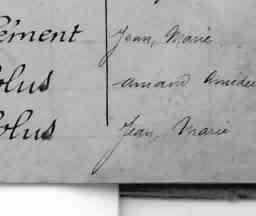 ément Jean, Marie
olus Amand Amédée
olus Jean, Marie